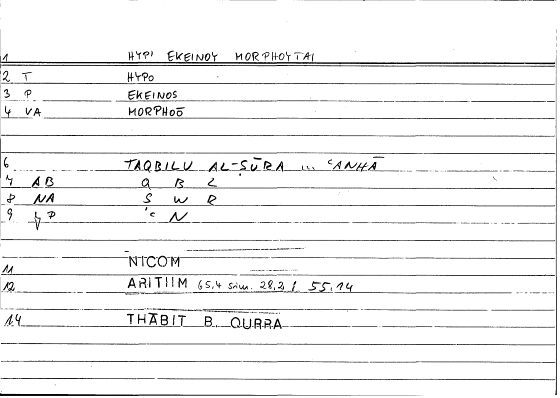 1 HYPI EKEINOY MORPHOYTAI
2 T HYPO
3 P EKEINOS
4 VA MORPHOŌ
6 TAQBILU AL-ṢŪRA ... ʿANHĀ
7 AB Q B L
8 NA Ṣ W R
9 P ʿ N
11 NICOM
12 ARITIIM 65,4 sim. 28,2 / 55,14
14 THĀBIT B. QURRA